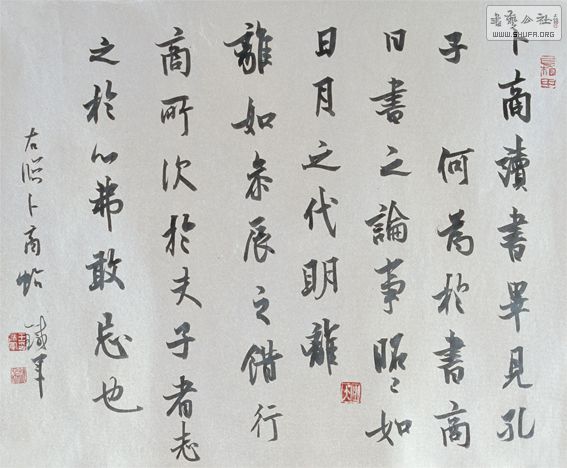 卜商讀書畢見孔
子 何為於書商
曰書之論事昭〻如
日月之代明離
離如參辰之錯行
商所受於夫子者志
之於心弗敢忘也
右臨卜商帖
書藝公社
WWW.SHUFA.ORG